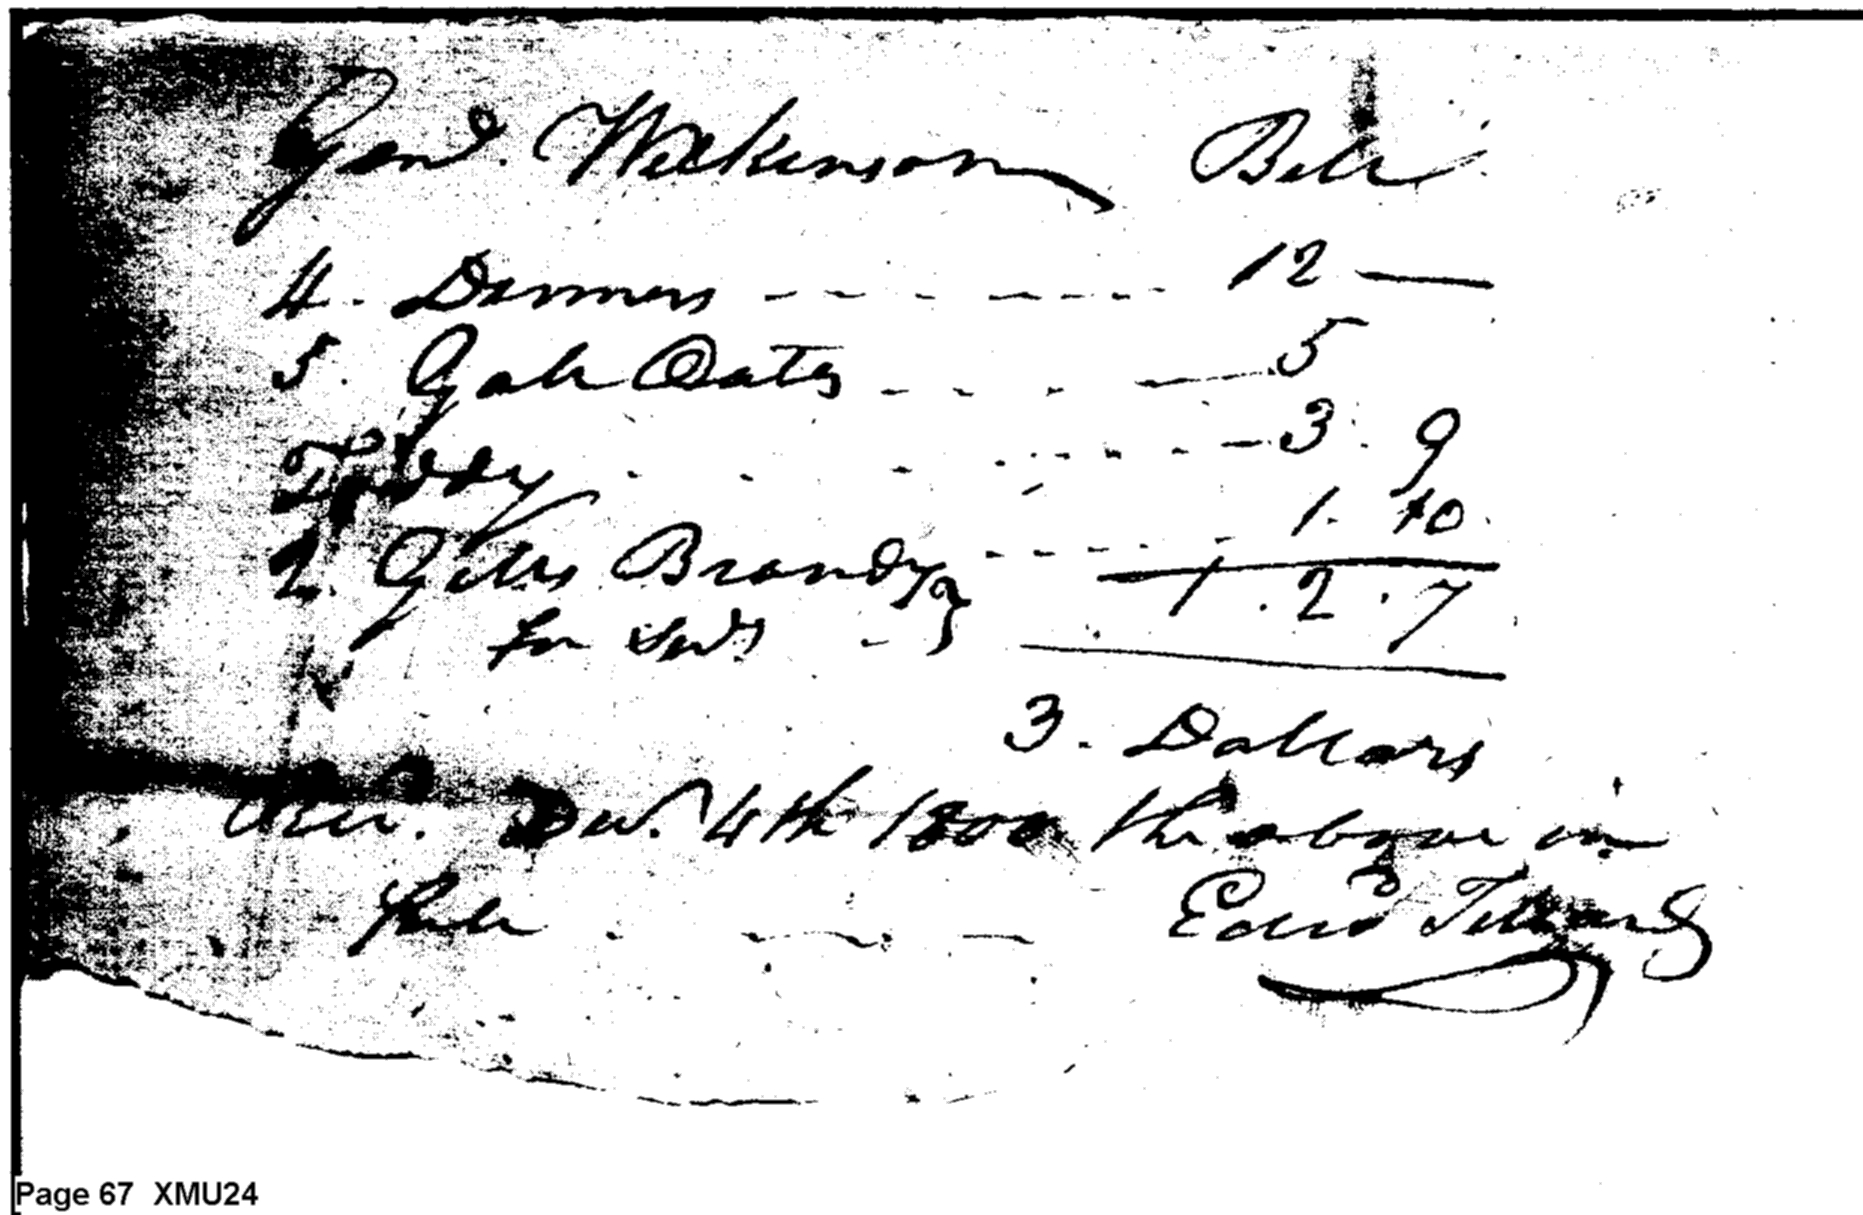 Genl. Wilkinson Bill
4. Dinners - - - - - - - 12 —
5. Gals Oates - - - - 5
Toddy - - - - - - - 3. 9
2. Gills Brandy } - - - - - 1. 10.
for Servts -
1. 2. 7
3. Dollars
Recd. Decr. 4th 1800 the above in
full - - - - Edwd
Page 67 XMU24